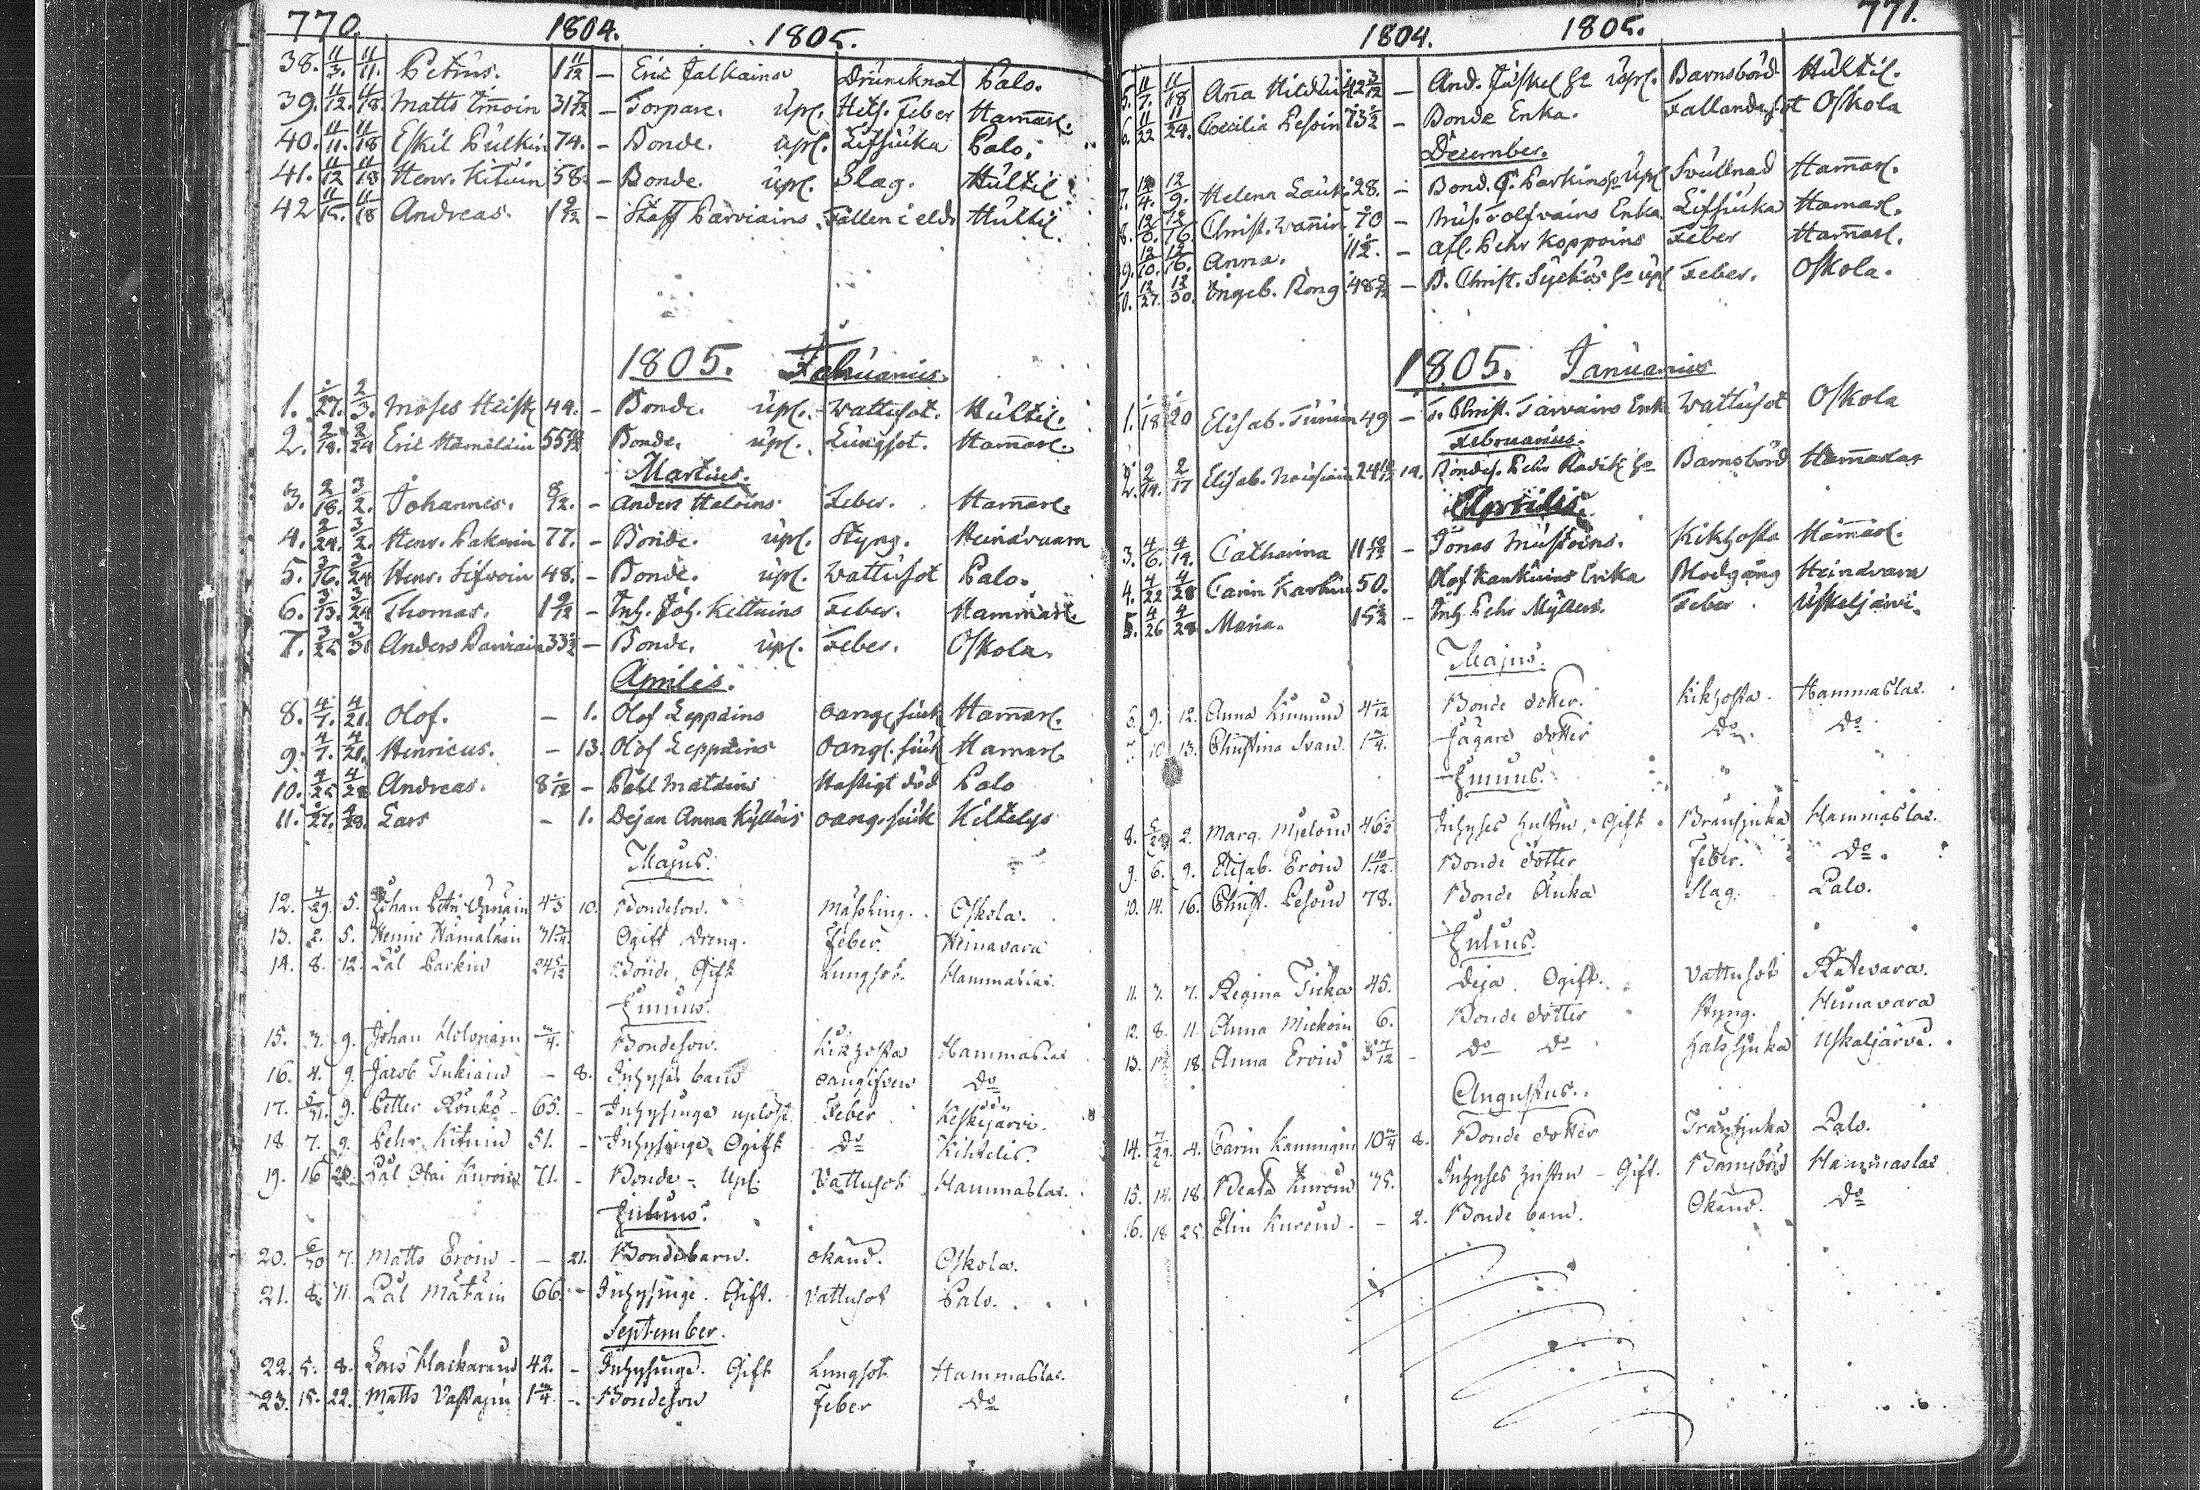 770. 1804. 1805.
38. 11/3. 11/11. Petrus. 1 11/12 – Eric Jalkains Druncknat Palo.
39. 11/12. 11/18. Matts Tm̄oin 31 7/12 – Torpare. upl. Hets. Feber Ham̄arl.
40. 11/11. 11/18 Eskil Pulkin 74. – Bonde. upl. Lifsiuka Palo.
41. 11/12 11/18 Henr. Kituin 58. – Bonde. upl. Slag. Hultil.
42 11/15. 11/18 Andreas. 1 9/12 – Staff Parviains Fallen i eld. Hultil.
1805. Februarius.
1. 1/27. 2/3. Moses Heisk 44. – Bonde. upl. Wattusot. Hultil.
2. 2/18. 2/24 Eric Hämäläin 55 Bonde. upl. Lungsot. Ham̄arl.
Martius.
3. 2/18. 3/2. Johannes. 8/12. – Anders Halvins Feber. Ham̄arl.
4. 2/24. 3/2. Henr. Pakarin 77. – Bonde. upl. Styng. Heinävaara
5. 3/16. 3/24 Henr. Sifvoin 48. – Bonde. upl. Wattusot Palo.
6. 3/13. 3/24 Thomas. 1 9/12 – Inh. Joh. Kettuins Feber. Hammarl.
7. 3/25 3/31 Anders Parviain 33 – Bonde. upl. Feber. Oskola.
Aprilis.
8. 4/7. 4/21. Olof. – 1. Olof Leppäins oang. siuk Ham̄arl.
9. 4/7. 4/21. Henricus. – 13. Olof Leppäins oang. siuk Hamarl.
10. 4/25 4/28 Andreas. 8/12 – Påhl Matäins Hastigt död Palo
11. 4/27. 4/28. Lars – 1. Dejan Anna Kyllöis oang. siuk Kiltelys
Majus.
12. 4/29. 5. Johan Petri 10. Bondeson. Mässling. Oskola.
13. 2. 5. Henric Hämäläin 31 Ogift Dreng. Feber. Heinavara
14. 8. 12. Pål Parkin 24 5/12 Bonde, Gift Lungsot. Hammaslax.
Junius.
15. 3. 9. Johan Holopain 3/4. Bondeson. Kikhosta Hammaslax
16. 4. 9. Jacob Tukiain – 8. Inhyses barn oangifven Do
17. 5/31. 9. Petter Rönkö – 65. – Inhysinge uplöst Feber Keskijärvi.
18 7. 9. Pehr Kituin 51. – Inhysinge Ogift Do Kihtelis.
19. 16 20. Pål Kuroin 71. – Bonde – Upl. Vattusot Hammaslax.
Julius.
20. 6/30 7. Matts Eroin – – 21. Bondebarn. okänd. Oskola.
21. 8. 11. Pål Matäin 66. – Inhysinge. Gift. Vattusot Palo.
September.
22. 5. 8. Lars Mackarain 42. – Inhysinge. Gift Lungsot Hammaslax.
23. 15. 22. Matts Vastapin 1 3/4. – Bondeson Feber Do
1804. 1805. 771.
5. 11/7. 11/18 Ana 42 3/12 – And. Jäskel H. upl. Barnsbörd Hultil.
6. 11/22 11/24. Cæcilia Pesoin 73 – Bonde Enka. Fallandesot Oskola
December.
7. 12/4. 12/9. Helena Lauk 28. – Bond. P. Parkins upl Svullnad Ham̄arl.
8. 12/6. 12/16. Christ. Wanin 70 – Enka Lifsiuka Hamarl.
9. 12/10. 12/16. Anna. 11/12. – Afl. Pehr Koppoins Feber Ham̄arl.
10. 12/27. 12/30. Ingeb. Kong 48 – B. Christ. upl Feber. Oskola.
1805. Januarius
1. 1/18 20 Elisab. Turuin 49 – Christ. Tarvains Enka Wattusot Oskola
Februarius.
2. 2/14. 2/17 Elisab. 24 14. Bondes. Pehr Barnsbörd Hammaslax
Aprilis.
3. 4/6. 4/14. Catharina 11 10/12 – Jonas Mustoins. Kikhosta Ham̄arl.
4. 4/22 4/28 Carin Karhuin 50. Olof Kankuins Enka Blodgång Heinävara
5. 4/26 4/28 Maria. 1 5/12 – Inh. Pehr Myllers. Feber. Uskeljärvi.
Majus.
6. 9. 12. Anna Kinnuin 4 1/12 Bonde dotter. Kikhosta. Hammaslax.
7. 10. 13. Christina Svan. 1 3/4. Jägare dotter Do Do
Junius.
8. 5/29 2. Marg. 46 Inhyses hustru, Gift. Bränsjuka Hammaslax.
9. 6. 9. Elisab. Eroin 1 10/12. Bonde dotter Feber. Do.
10. 14. 16. Christ. Pesoin 78. Bonde Änka Slag. Palo.
Julius.
11. 3. 7. Regina Ticka 45. Deja. Ogift. Vattusot Ratevara.
12. 8. 11. Anna Mickoin 6. Bonde dotter Styng. Heinavara
13. 18. Anna Eroin 3 7/12 – Do Do halssjuka Uskaljärvi.
Augustus.
14. 7/29. 4. Carin Kaunuin 10 3/4 8. Bonde dotter Tränsjuka Palo.
15. 14. 18. Beata Kuroin 35. Inhyses hustru – Gift. Barnsbörd Hammaslax
16. 18. 25. Elin Kuroin – – 2. Bonde barn. Okänd. Do